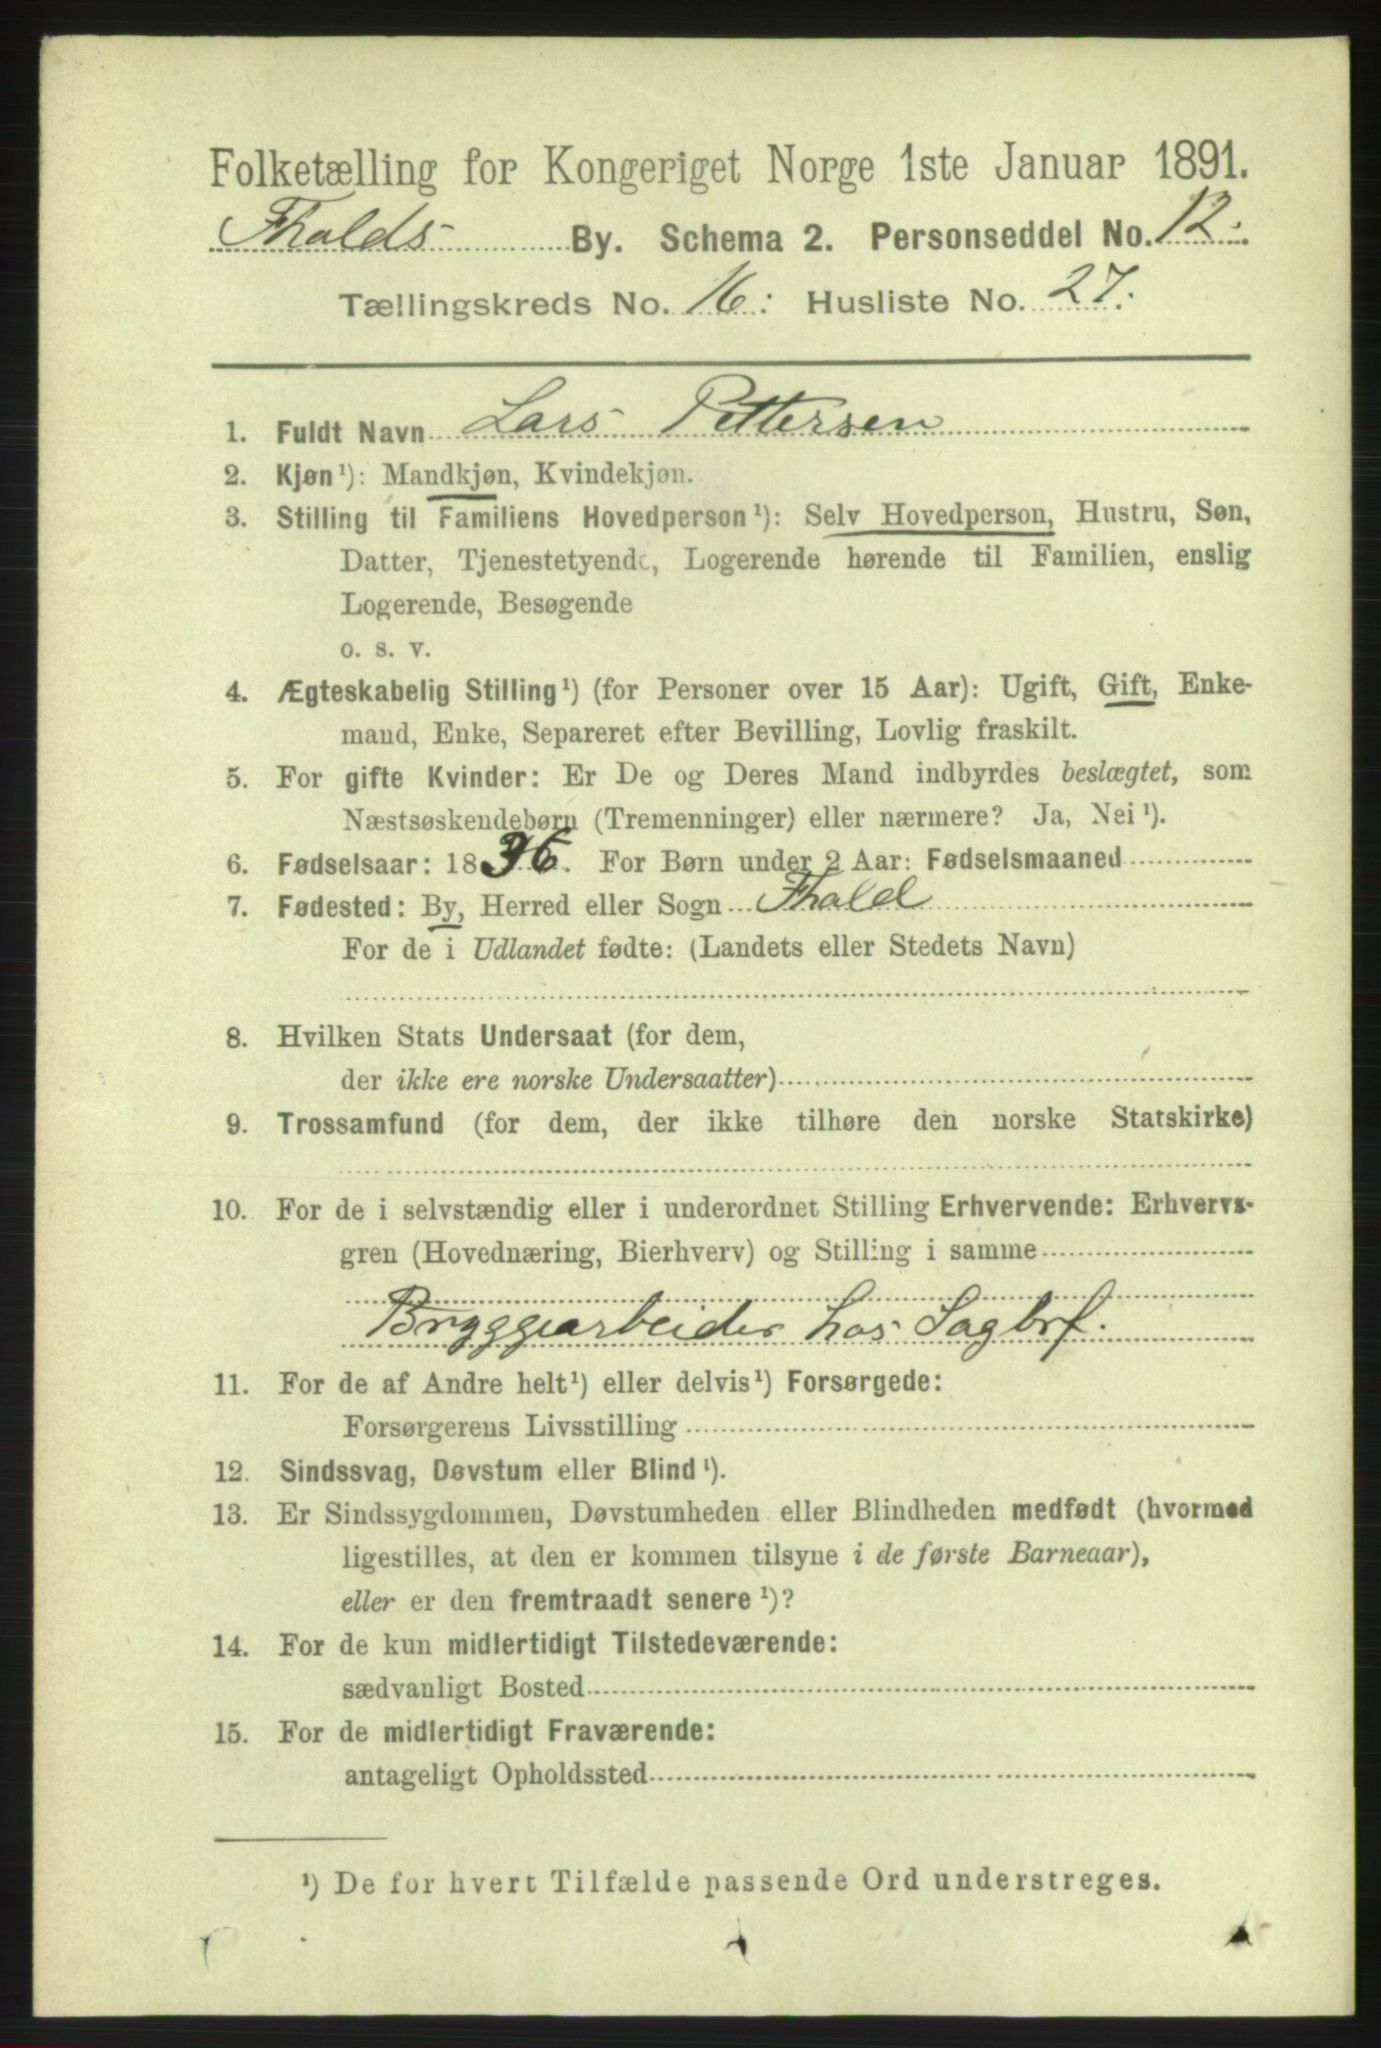 Folketælling for Kongeriget Norge 1ste Januar 1891.
Fhalds By. Schema 2. Personseddel No. 12.
Tællingskreds No. 16: Husliste No. 27.
1. Fuldt Navn Lars Pettersen
2. Kjøn¹): Mandkjøn, Kvindekjøn.
3. Stilling til Familiens Hovedperson¹): Selv Hovedperson, Hustru, Søn,
Datter, Tjenestetyende, Logerende hørende til Familien, enslig
Logerende, Besøgende
o. s. v.
4. Ægteskabelig Stilling¹) (for Personer over 15 Aar): Ugift, Gift, Enke-
mand, Enke, Separeret efter Bevilling, Lovlig fraskilt.
5. For gifte Kvinder: Er De og Deres Mand indbyrdes beslægtet, som
Næstsøskendebørn (Tremenninger) eller nærmere? Ja, Nei¹).
6. Fødselsaar: 1836. For Børn under 2 Aar: Fødselsmaaned
7. Fødested: By, Herred eller Sogn Fhald
For de i Udlandet fødte: (Landets eller Stedets Navn)
8. Hvilken Stats Undersaat (for dem,
der ikke ere norske Undersaatter)
9. Trossamfund (for dem, der ikke tilhøre den norske Statskirke)
10. For de i selvstændig eller i underordnet Stilling Erhvervende: Erhvervs-
gren (Hovednæring, Bierhverv) og Stilling i samme
Bryggearbeider hos Sagbrf.
11. For de af Andre helt¹) eller delvis¹) Forsørgede:
Forsørgerens Livsstilling
12. Sindssvag, Døvstum eller Blind¹).
13. Er Sindssygdommen, Døvstumheden eller Blindheden medfødt (hvormed
ligestilles, at den er kommen tilsyne i de første Barneaar),
eller er den fremtraadt senere¹)?
14. For de kun midlertidigt Tilstedeværende:
sædvanligt Bosted
15. For de midlertidigt Fraværende:
antageligt Opholdssted
¹) De for hvert Tilfælde passende Ord understreges.